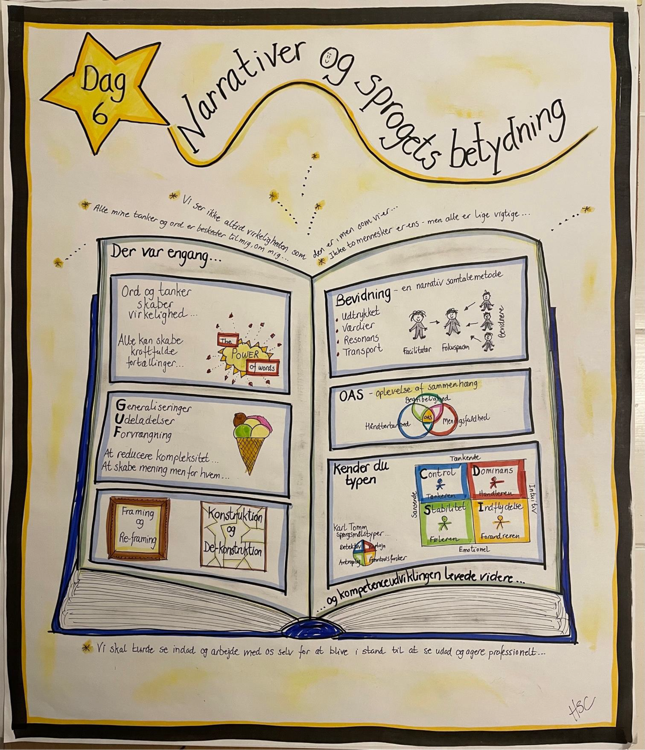 Dag
6
Narrativer og sprogets betydning
Vi ser ikke altid virkeligheden som den er, men som vi er...
Alle mine tanker og ord er beskeder til mig, om mig...
Ikke to mennesker er ens - men alle er lige vigtige...
Der var engang...
Ord og tanker
skaber
virkelighed...
Alle kan skabe
kraftfulde
fortællinger...
The
POWER
of words
Generaliseringer
Udeladelser
Forvrængning
At reducere kompleksitet...
At skabe mening men for hvem...
Framing
og
Re-framing
Konstruktion
og
De-konstruktion
Bevidning - en narrativ samtalemetode
Udtrykket
Værdier
Resonans
Transport
Facilitator
Fokusperson
Bevidnere
OAS - oplevelse af sammenhæng
Begribelighed
Håndterbarhed
OAS
Meningsfuldhed
Kender du
typen
Tænkende
Sansende
Intuitiv
Control
Tænkeren
Dominans
Handleren
Stabilitet
Føleren
Indflydelse
Emotionel
Karl Tomm
spørgsmålstyper...
...og kompetenceudviklingen levede videre...
Vi skal turde se indad og arbejde med os selv for at blive i stand til at se udad og agere professionelt...
HSC